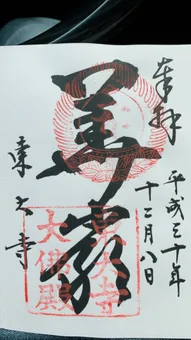 奉拝
平成三十年
十二月八日
華嚴
東大寺
東大寺
大佛殿